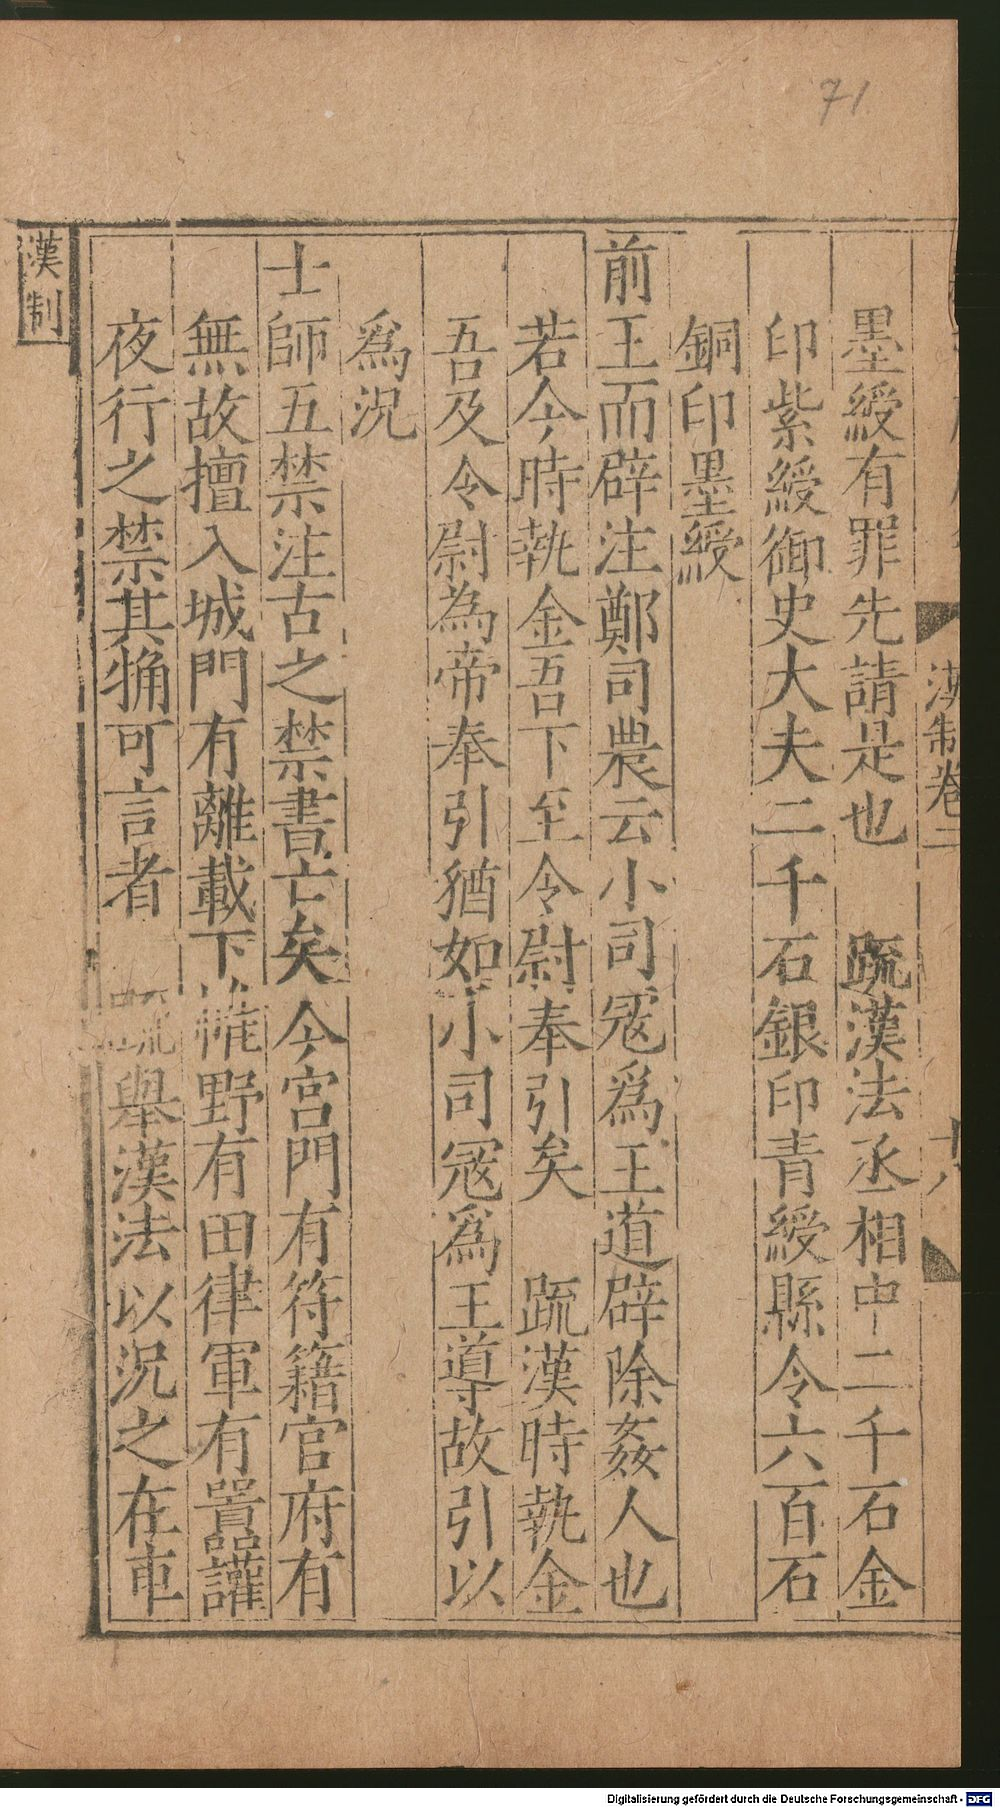 71
漢制卷二
十八
墨綬有罪先請是也　䟽漢法丞相中二千石金
印紫綬御史大夫二千石銀印青綬縣令六百石
銅印墨綬
前王而辟注鄭司農云小司冦爲王道辟除姦人也
若今時執金吾下至令尉奉引矣　䟽漢時執金
吾及令尉為帝奉引猶如小司冦爲王導故引以
爲況
士師五禁注古之禁書亡矣今宮門有符籍官府有
無故擅入城門有離載下帷野有田律軍有嚻讙
夜行之禁其觕可言者　䟽舉漢法以況之在車
漢制
Digitalisierung gefördert durch die Deutsche Forschungsgemeinschaft - DFG